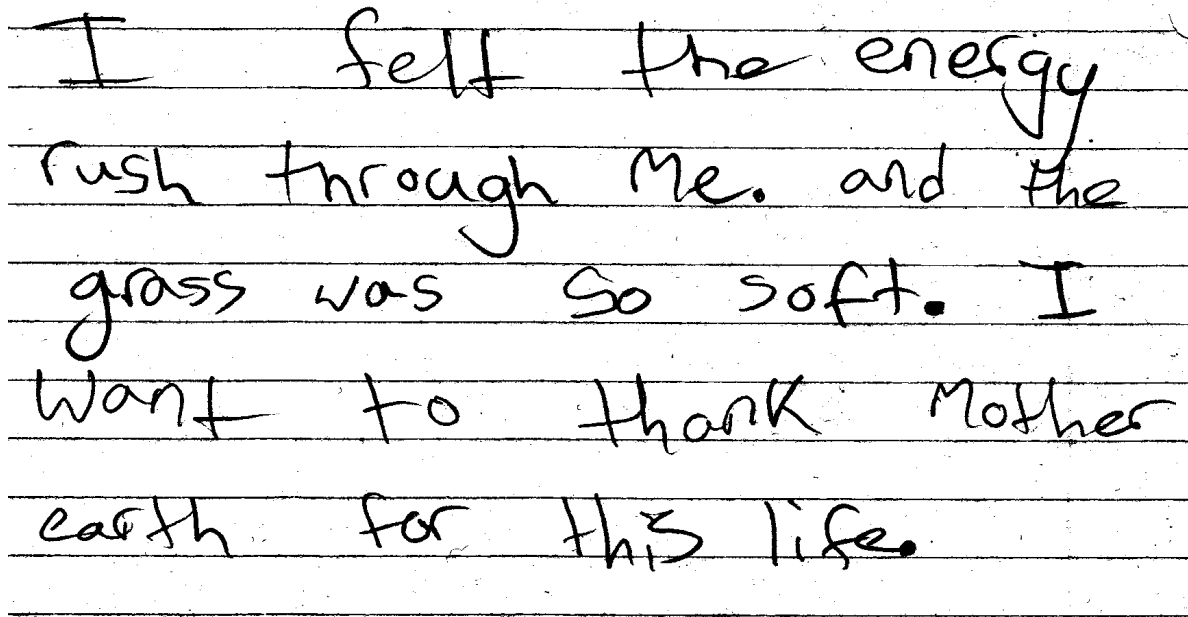 I felt the energy
rush through Me. and the
grass was So soft. I
Want to thank Mother
earth for this life.